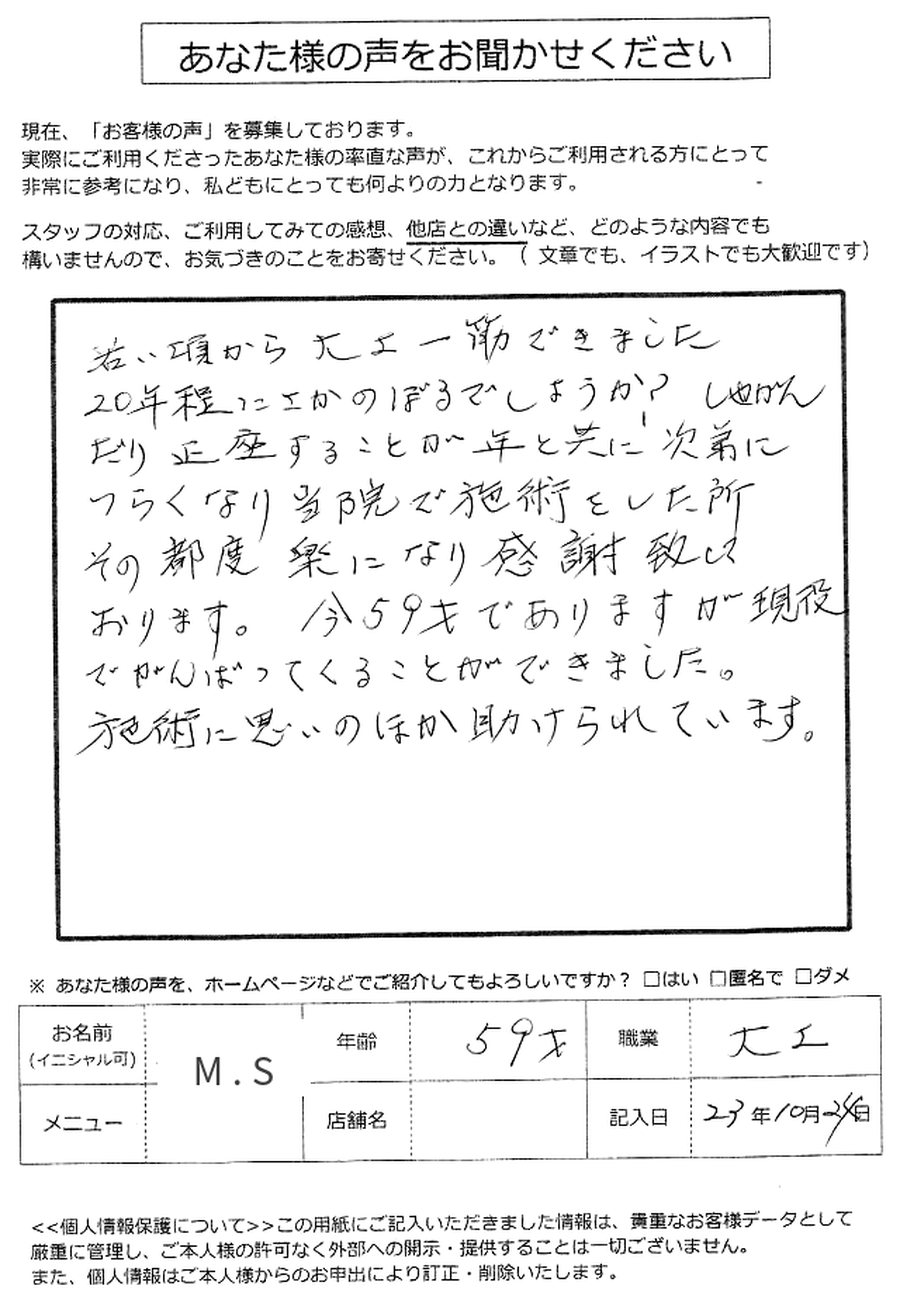 あなた様の声をお聞かせください
現在、「お客様の声」を募集しております。
実際にご利用くださったあなた様の率直な声が、これからご利用される方にとって
非常に参考になり、私どもにとっても何よりの力となります。
スタッフの対応、ご利用してみての感想、他店との違いなど、どのような内容でも
構いませんので、お気づきのことをお寄せください。（ 文章でも、イラストでも大歓迎です）
若い頃から 大工一筋できました
20年程にさかのぼるでしょうか? しゃがん
だり 正座することが 年と共に 次第に
つらくなり 当院で施術をした所
その都度 楽になり 感謝致して
おります。 今59才でありますが 現役
でがんばってくることができました。
施術に思いのほか助けられています。
※ あなた様の声を、ホームページなどでご紹介してもよろしいですか？ □はい □匿名で □ダメ
お名前 M.S 年齢 59才 職業 大工
(イニシャル可)
メニュー 店舗名 記入日 23年10月24日
<<個人情報保護について>>この用紙にご記入いただきました情報は、貴重なお客様データとして
厳重に管理し、ご本人様の許可なく外部への開示・提供することは一切ございません。
また、個人情報はご本人様からのお申出により訂正・削除いたします。